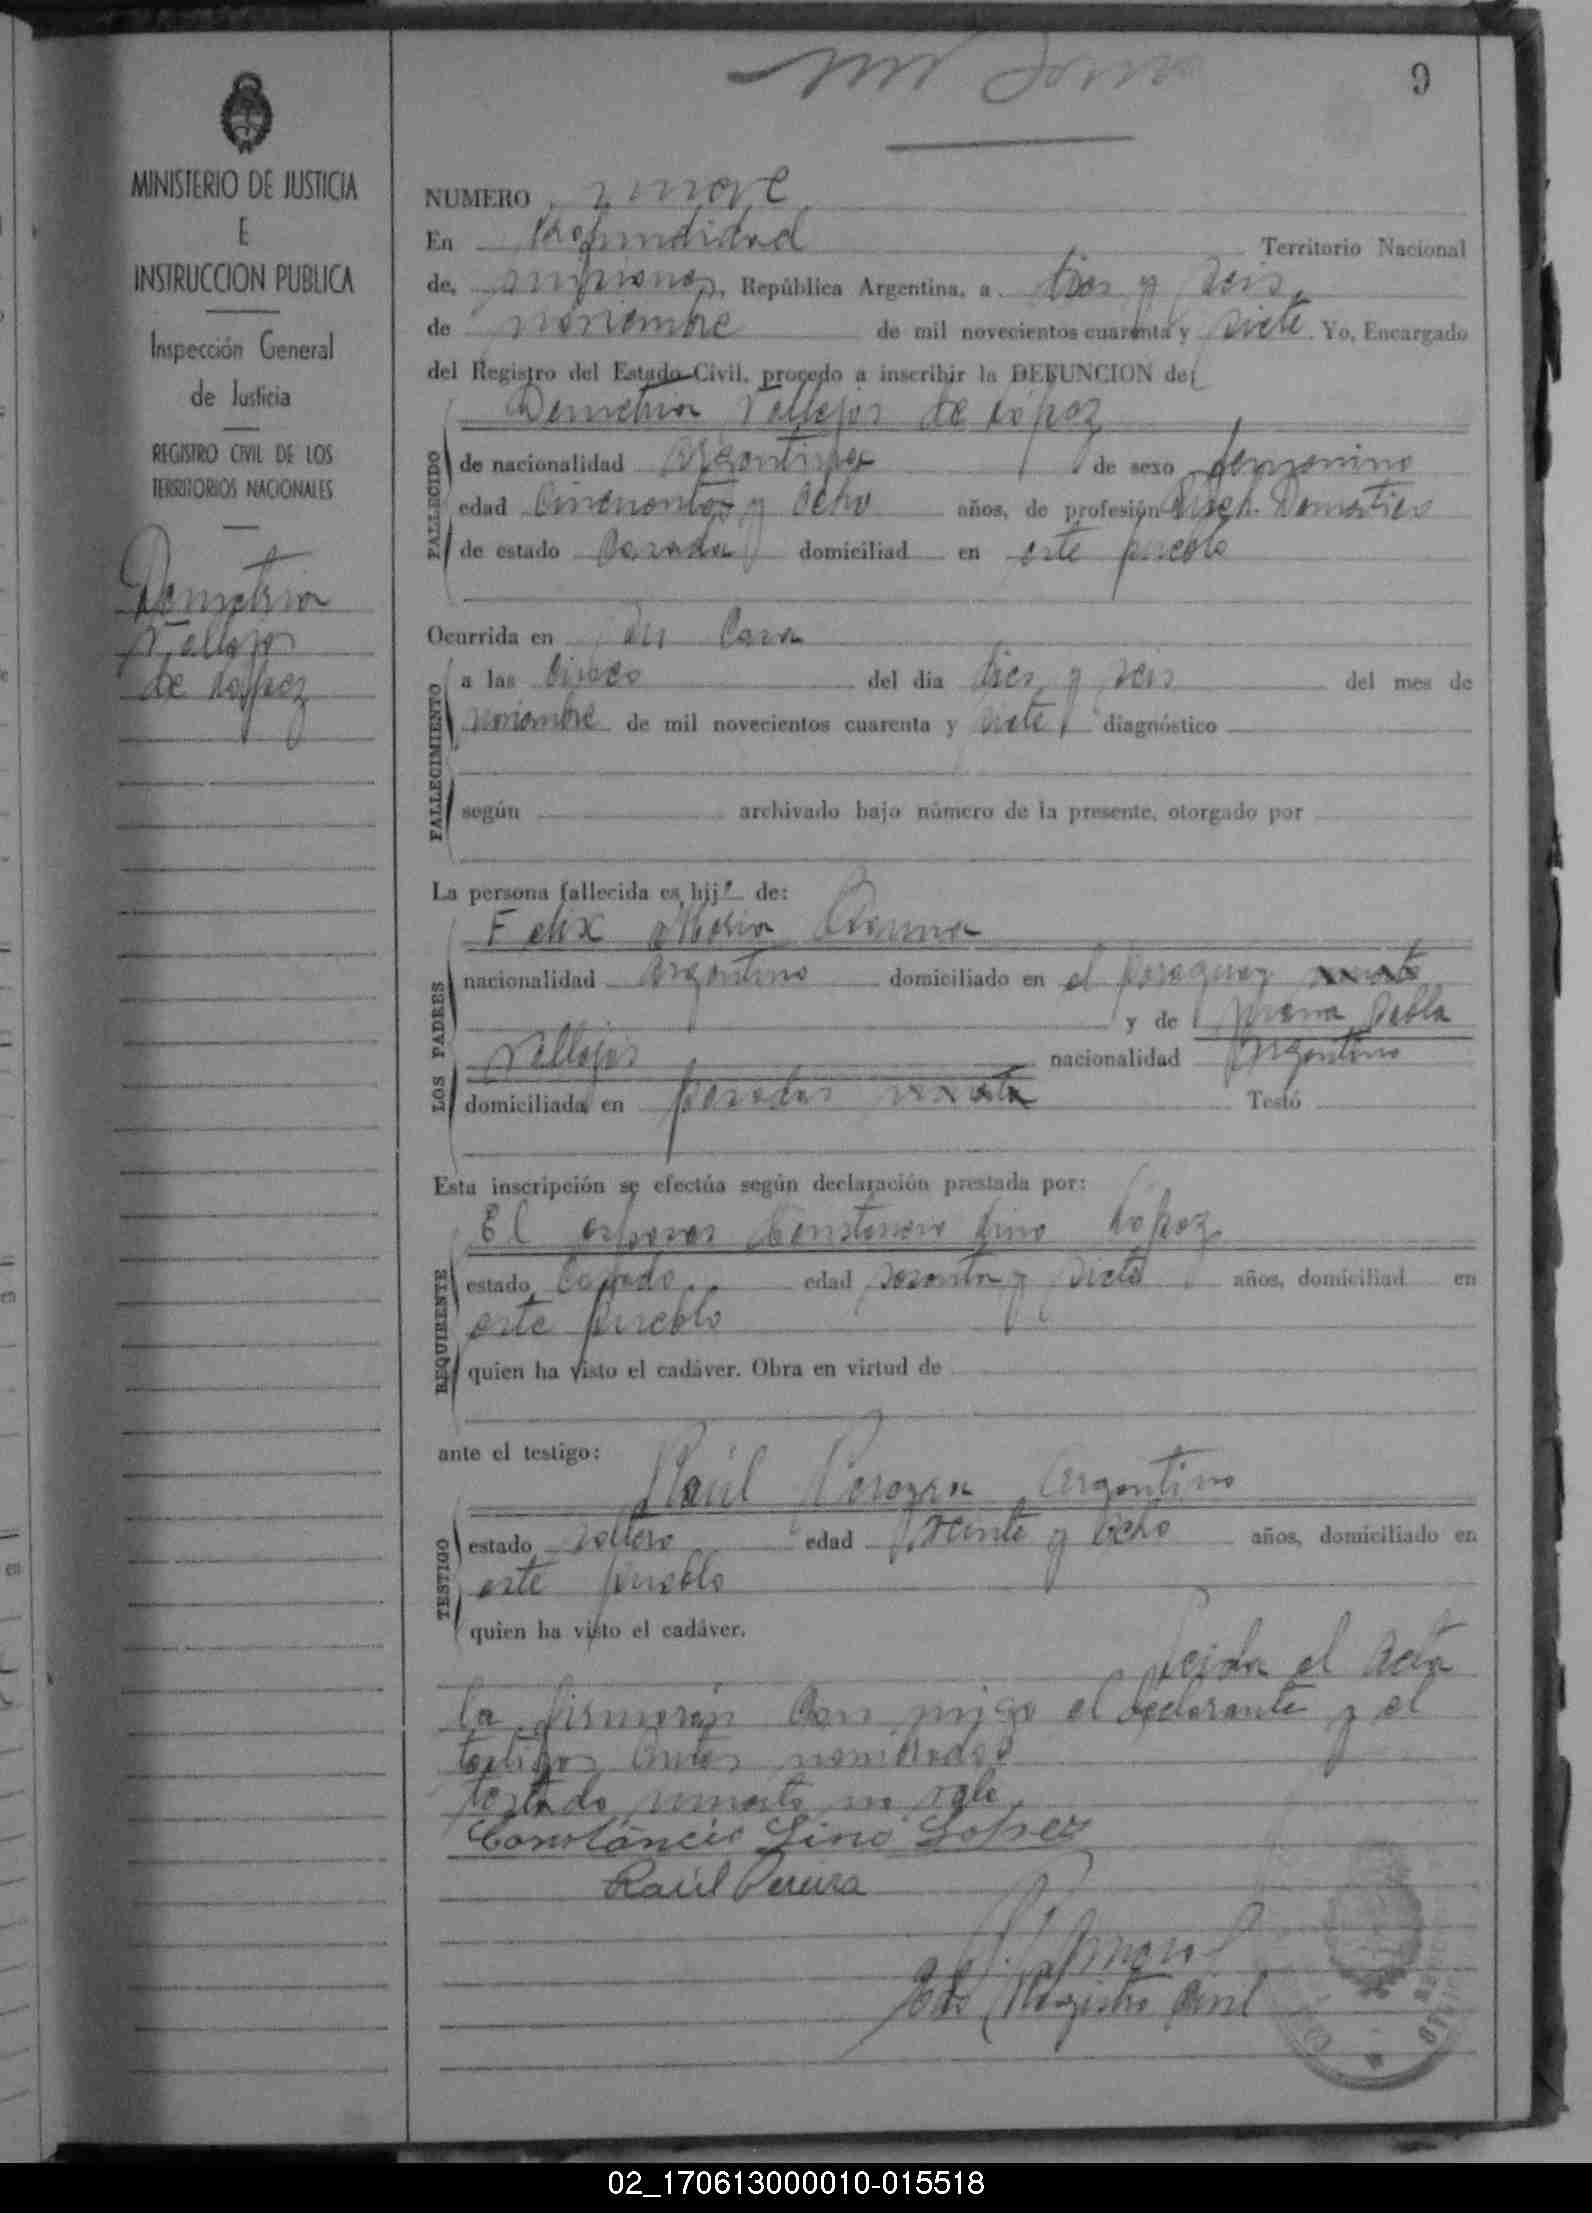 9
MINISTERIO DE JUSTICIA
E
INSTRUCCION PUBLICA
Inspección General
de Justicia
REGISTRO CIVIL DE LOS
TERRITORIOS NACIONALES
Demetria
Vallejos
de López
NUMERO nueve
En Profundidad Territorio Nacional
de, misiones, República Argentina, a dies y seis
de noviembre de mil novecientos cuarenta y siete. Yo, Encargado
del Registro del Estado Civil, procedo a inscribir la DEFUNCION de
FALLECIDO
Demetria Vallejos de López
de nacionalidad Argentina de sexo femenino
edad Cincuenta y Ocho años, de profesión Domestico
de estado Casada domiciliad en este pueblo
Ocurrida en su Casa
FALLECIMIENTO
a las Cinco del dia dies y seis del mes de
noviembre de mil novecientos cuarenta y siete, diagnóstico
según archivado bajo número de la presente, otorgado por
La persona fallecida es hij de:
LOS PADRES
Felix Maria
nacionalidad Argentino domiciliado en el Paraguay
y de Juana Pabla
Vallejos nacionalidad Argentina
domiciliada en Posadas Testó
Esta inscripción se efectúa según declaración prestada por:
REQUIRENTE
El esposos Constancio Lino López
estado Casado edad sesenta y siete años, domiciliad en
este pueblo
quien ha visto el cadáver. Obra en virtud de
ante el testigo:
TESTIGO
Raúl Pereyra Argentino
estado soltero edad Veinte y Ocho años, domiciliado en
este pueblo
quien ha visto el cadáver.
Leida el Acta
la firmarán Con migo el declarante y el
testigos Antes nombrados
testado muerto no vale
Constáncio Lino Lopez
Raúl Pereira
Edo Registro Civil
02_170613000010-015518